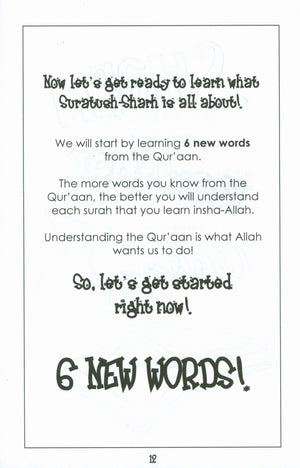 Now let's get ready to learn what
Suratush-Sharh is all about!
We will start by learning 6 new words
from the Qur'aan.
The more words you know from the
Qur'aan, the better you will understand
each surah that you learn insha-Allah.
Understanding the Qur'aan is what Allah
wants us to do!
So, let's get started
right now!
6 NEW WORDS!
12